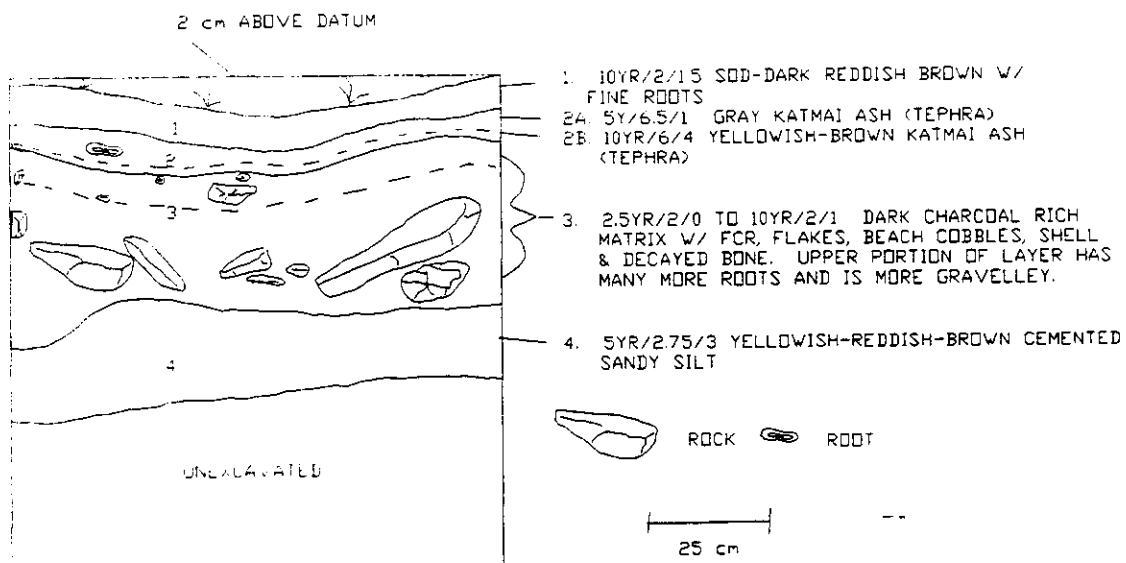 2 cm ABOVE DATUM
1. 10YR/2/1.5 SOD-DARK REDDISH BROWN W/
FINE ROOTS
2A. 5Y/6.5/1 GRAY KATMAI ASH (TEPHRA)
2B. 10YR/6/4 YELLOWISH-BROWN KATMAI ASH
(TEPHRA)
3. 2.5YR/2/0 TO 10YR/2/1 DARK CHARCOAL RICH
MATRIX W/ FCR, FLAKES, BEACH COBBLES, SHELL
& DECAYED BONE. UPPER PORTION OF LAYER HAS
MANY MORE ROOTS AND IS MORE GRAVELLEY.
4. 5YR/2.75/3 YELLOWISH-REDDISH-BROWN CEMENTED
SANDY SILT
1
2
3
4
UNEXCAVATED
ROCK ROOT
25 cm